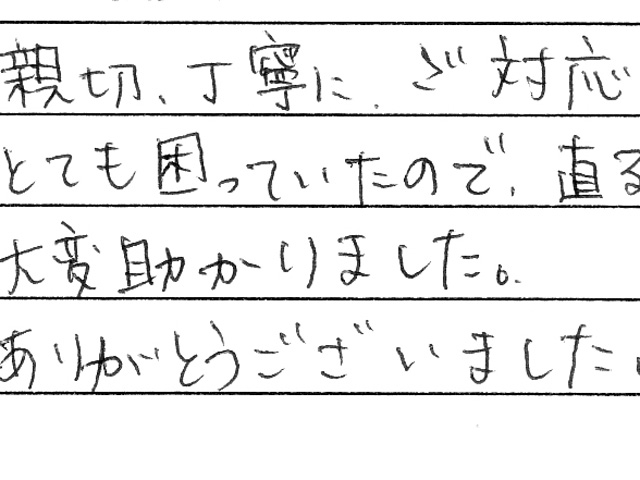 親切、丁寧に、ご対応
とても困っていたので、直る
大変助かりました。
ありがとうございました。